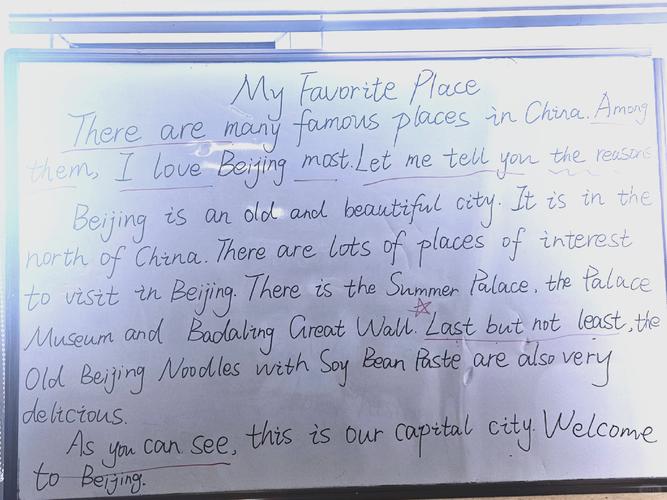 My Favorite Place
There are many famous places in China. Among
them, I love Beijing most. Let me tell you the reasons
Beijing is an old and beautiful city. It is in the
north of China. There are lots of places of interest
to visit in Beijing. There is the Summer Palace, the Palace
Museum and Badaling Great Wall. Last but not least, the
Old Beijing Noodles with Soy Bean Paste are also very
delicious.
As you can see, this is our capital city. Welcome
to Beijing.